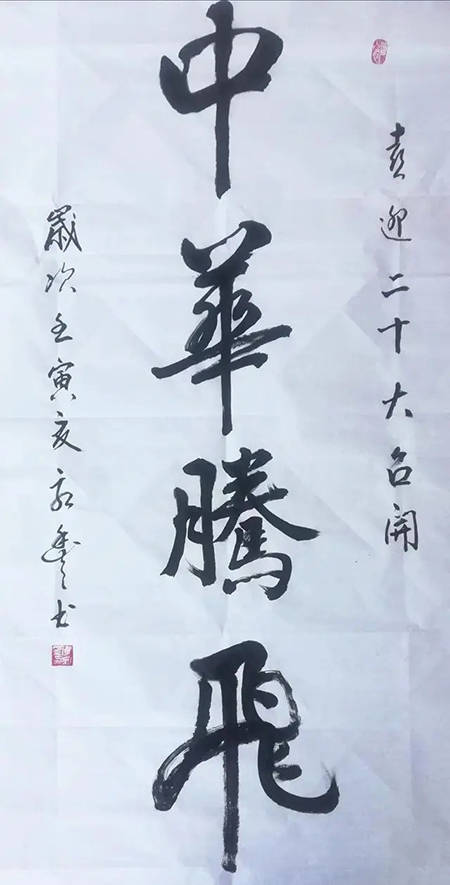 喜迎二十大召開
中華騰飛
歲次壬寅夏书